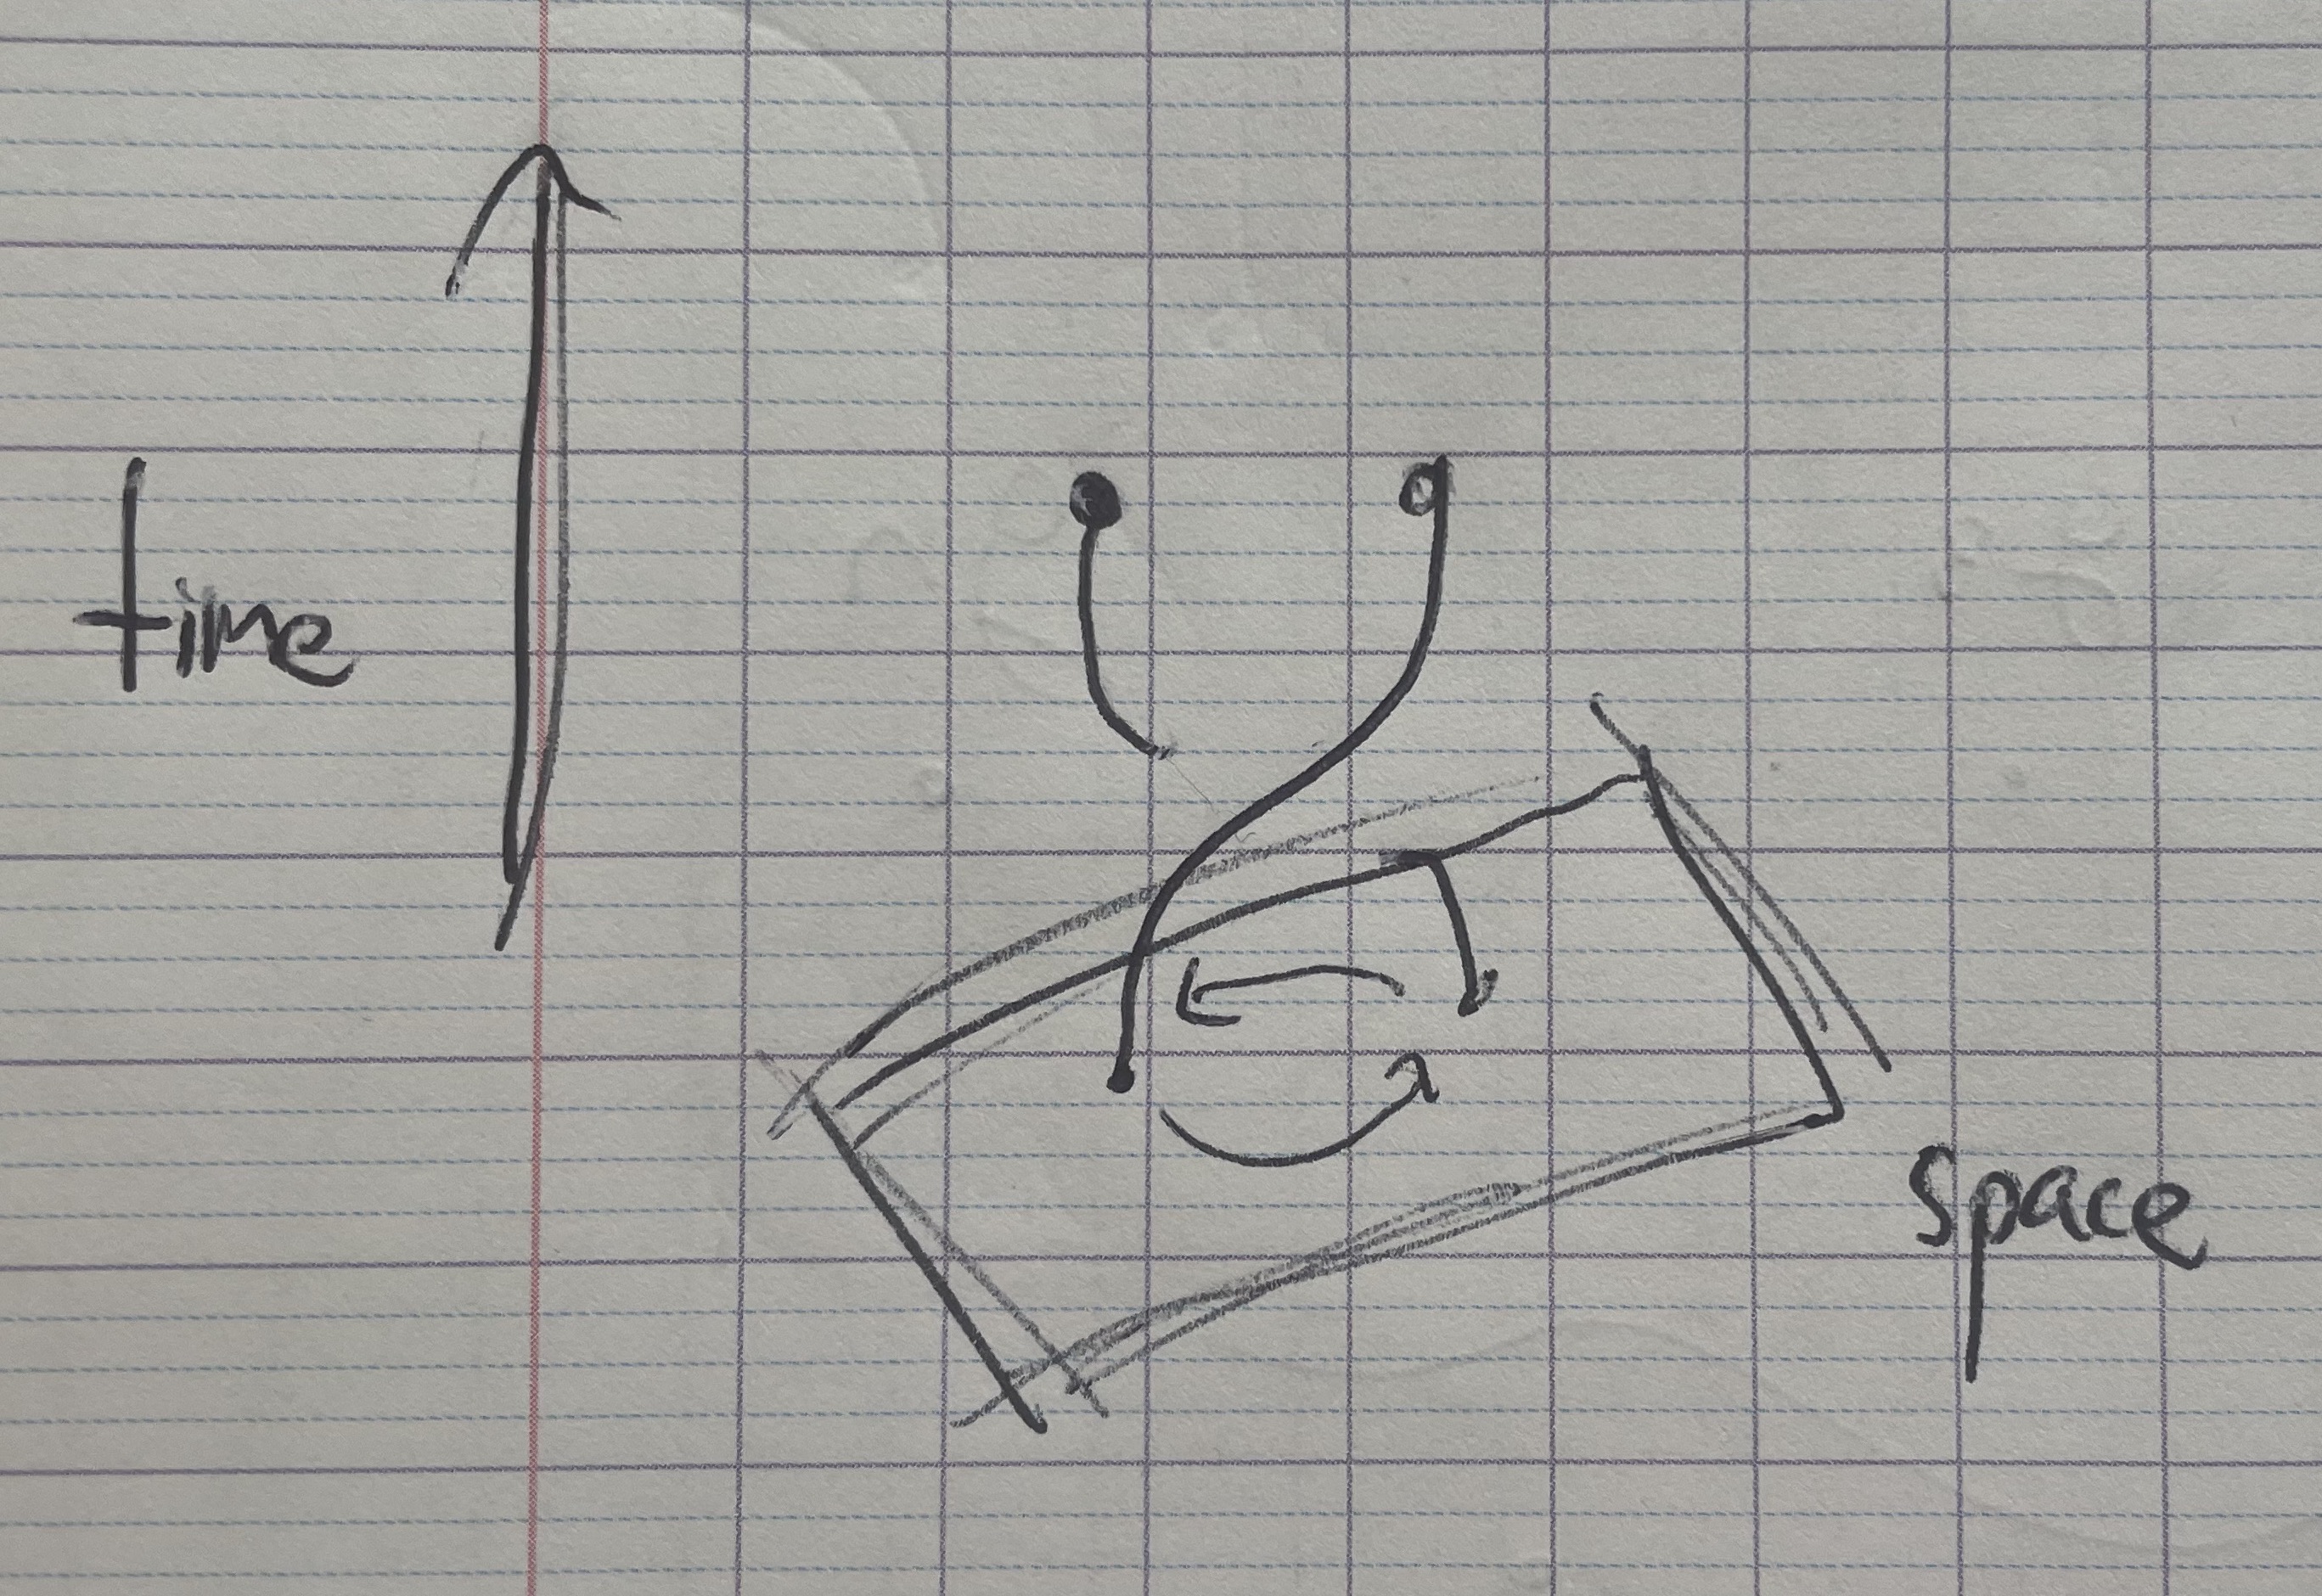 time
space